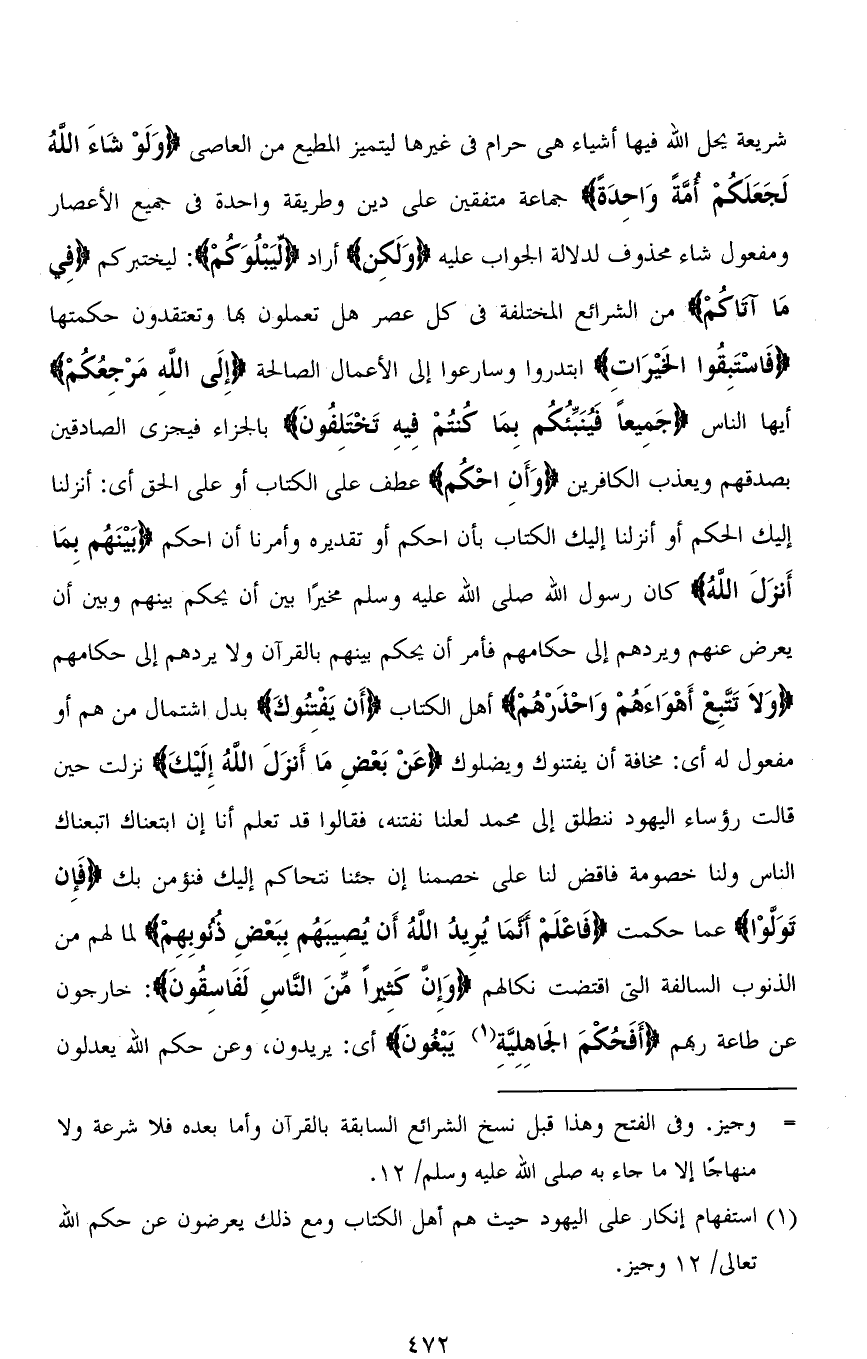 شريعة يحل الله فيها أشياء هى حرام فى غيرها ليتميز المطيع من العاصى ﴿وَلَوْ شَاءَ اللَّهُ
لَجَعَلَكُمْ أُمَّةً وَاحِدَةً﴾ جماعة متفقين على دين وطريقة واحدة فى جميع الأعصار
ومفعول شاء محذوف لدلالة الجواب عليه ﴿وَلَكِن﴾ أراد ﴿لِّيَبْلُوَكُمْ﴾: ليختبركم ﴿فِي
مَا آتَاكُمْ﴾ من الشرائع المختلفة فى كل عصر هل تعملون بها وتعتقدون حكمتها
﴿فَاسْتَبِقُوا الخَيْرَاتِ﴾ ابتدروا وسارعوا إلى الأعمال الصالحة ﴿إِلَى اللَّهِ مَرْجِعُكُمْ﴾
أيها الناس ﴿جَمِيعاً فَيُنَبِّئُكُم بِمَا كُنتُمْ فِيهِ تَخْتَلِفُونَ﴾ بالجزاء فيجزى الصادقين
بصدقهم ويعذب الكافرين ﴿وَأَنِ احْكُم﴾ عطف على الكتاب أو على الحق أى: أنزلنا
إليك الحكم أو أنزلنا إليك الكتاب بأن احكم أو تقديره وأمرنا أن احكم ﴿بَيْنَهُم بِمَا
أَنزَلَ اللَّهُ﴾ كان رسول الله صلى الله عليه وسلم مخيرًا بين أن يحكم بينهم وبين أن
يعرض عنهم ويردهم إلى حكامهم فأمر أن يحكم بينهم بالقرآن ولا يردهم إلى حكامهم
﴿وَلاَ تَتَّبِعْ أَهْوَاءَهُمْ وَاحْذَرْهُمْ﴾ أهل الكتاب ﴿أَن يَفْتِنُوكَ﴾ بدل اشتمال من هم أو
مفعول له أى: مخافة أن يفتنوك ويضلوك ﴿عَنْ بَعْضِ مَا أَنزَلَ اللَّهُ إِلَيْكَ﴾ نزلت حين
قالت رؤساء اليهود ننطلق إلى محمد لعلنا نفتنه، فقالوا قد تعلم أنا إن ابتعناك اتبعناك
الناس ولنا خصومة فاقض لنا على خصمنا إن جئنا نتحاكم إليك فنؤمن بك ﴿فَإِن
تَوَلَّوْا﴾ عما حكمت ﴿فَاعْلَمْ أَنَّمَا يُرِيدُ اللَّهُ أَن يُصِيبَهُم بِبَعْضِ ذُنُوبِهِمْ﴾ لما لهم من
الذنوب السالفة التى اقتضت نكالهم ﴿وَإِنَّ كَثِيراً مِّنَ النَّاسِ لَفَاسِقُونَ﴾: خارجون
عن طاعة ربهم ﴿أَفَحُكْمَ الجَاهِلِيَّةِ(١) يَبْغُونَ﴾ أى: يريدون، وعن حكم الله يعدلون
= وجيز. وفى الفتح وهذا قبل نسخ الشرائع السابقة بالقرآن وأما بعده فلا شرعة ولا
منهاجًا إلا ما جاء به صلى الله عليه وسلم/ ١٢.
(١) استفهام إنكار على اليهود حيث هم أهل الكتاب ومع ذلك يعرضون عن حكم الله
تعالى/ ١٢ وجيز.
٤٧٢